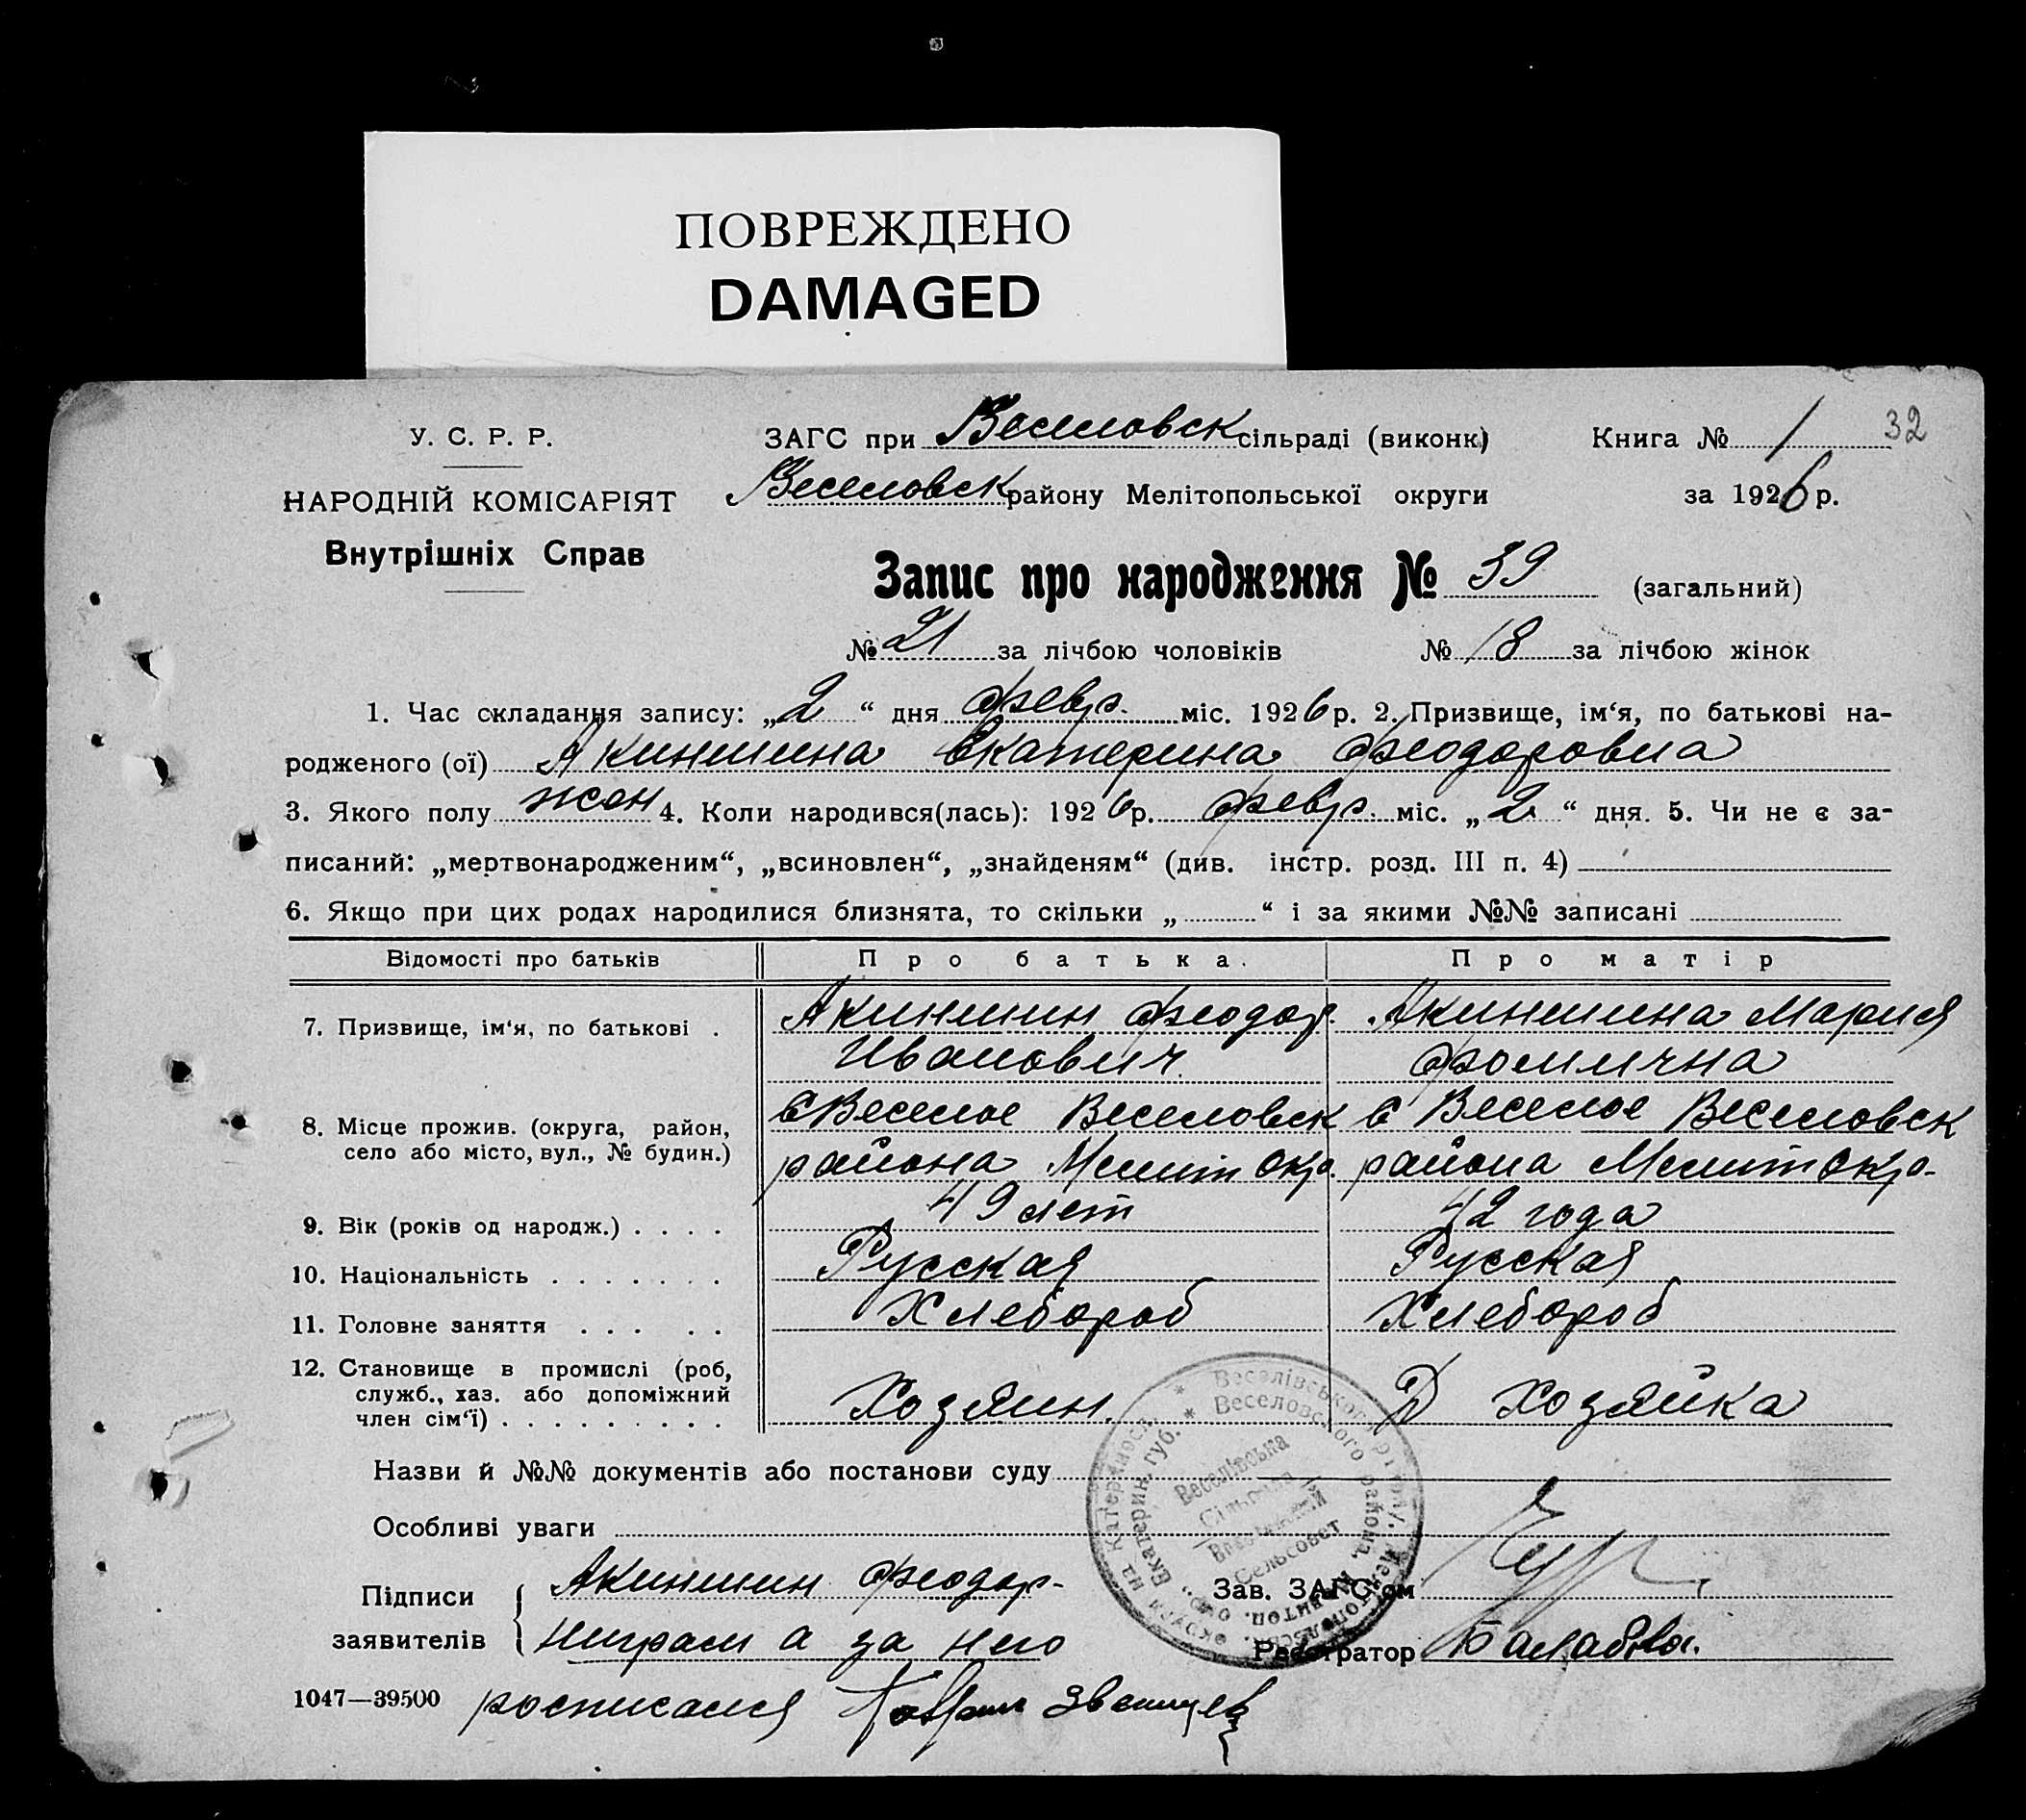 ПОВРЕЖДЕНО
DAMAGED
У. С. Р. Р.
НАРОДНІЙ КОМІСАРІЯТ
Внутрішніх Справ
ЗАГС при Веселовск сільраді (виконк)
Книга № 1
32
Веселовск району Мелітопольської округи
за 1926 р.
Запис про народження № 39 (загальний)
№ 21 за лічбою чоловіків № 18 за лічбою жінок
1. Час складання запису: „2“ дня февр. міс. 1926 р. 2. Призвище, ім‘я, по батькові на-
родженого (ої) Акиншина Екатерина Феодоровна
3. Якого полу жен 4. Коли народився(лась): 1926 р. февр. міс. „2“ дня. 5. Чи не є за-
писаний: „мертвонародженим“, „всиновлен“, „знайденям“ (див. інстр. розд. III п. 4)
6. Якщо при цих родах народилися близнята, то скільки „ “ і за якими №№ записані
Відомості про батьків Про батька. Про матір
7. Призвище, ім‘я, по батькові .
Акиншин Феодор.
Иванович.
Акиншина Мария
Фомична
8. Місце прожив. (округа, район,
село або місто, вул., № будин.)
С Веселое Веселовск
района Мелит Окр.
С Веселое Веселовск
района Мелит Окр.
9. Вік (років од народж.) . . . . 49 лет 42 года
10. Національність . . . . . . . Русская Русская
11. Головне заняття . . . . . Хлебороб Хлебороб
12. Становище в промислі (роб,
служб., хаз. або допоміжний
член сім‘ї) . . . . . . . . .
Хозяин.
Д Хозяйка
Назви й №№ документів або постанови суду
Особливі уваги
Веселівська
Сільрада
Веселовский
Сельсовет
Підписи
заявителів
Акиншин Феодор-
неграм а за него
росписался
Зав. ЗАГС‘ом
Реєстратор
1047—39500